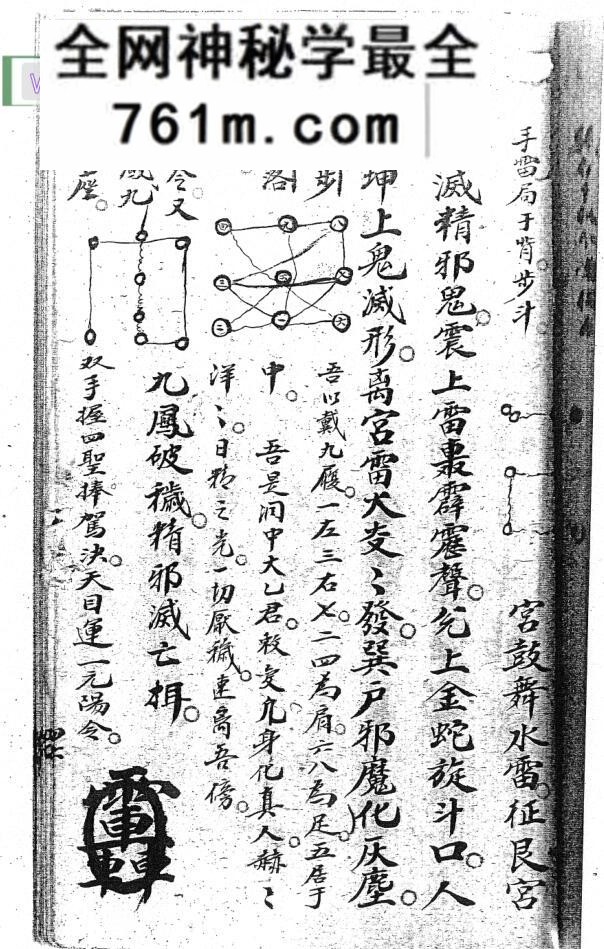 全网神秘学最全
761m.com
手雷局于背步斗
宮鼓舞水雷征艮宮
滅精邪鬼震上雷轟霹靂聲兌上金蛇旋斗口人
坤上鬼滅形离宮雷火发〻發巽戶邪魔化灰塵
步
吾以戴九履一左三右七二四為肩六八為足五居于
落
中 吾是洞中太乙君敕变凡身化真人赫〻
洋〻日精之光一切厭穢速离吾傍
令又
九鳳破穢精邪滅亡楫
九
座
双手握四聖捧駕決天目運一元陽令
四 九 八
三 五 七
二 一 六